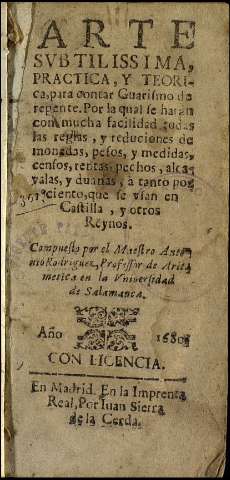 ARTE
SVBTILISSIMA,
PRACTICA, Y TEORI-
ca, para contar Guarismo de
repente. Por la qual se haran
con mucha facilidad todas
las reglas, y reduciones de
monedas, pesos, y medidas,
censos, rentas, pechos, alca-
valas, y duanas, a tanto por
ciento, que se vsan en
Castilla, y otros
Reynos.
Compuesto por el Maestro Anto-
nio Rodriguez, Professor de Arit-
metica en la Vniuersidad
de Salamanca.
Año 1680
CON LICENCIA.
En Madrid. En la Imprenta
Real, Por Iuan Sierra
de la Cerda.